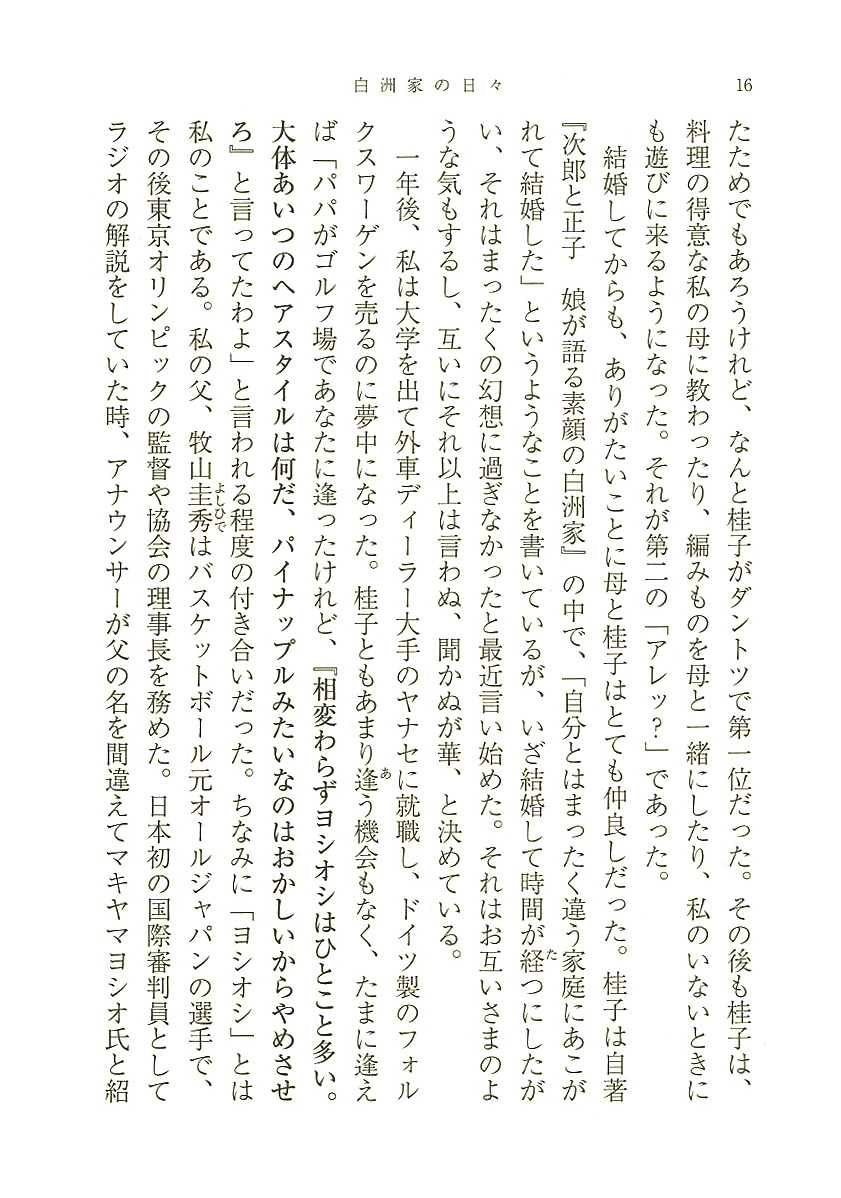 白洲家の日々
16
たためでもあろうけれど、なんと桂子がダントツで第一位だった。その後も桂子は、
料理の得意な私の母に教わったり、編みものを母と一緒にしたり、私のいないときに
も遊びに来るようになった。それが第二の「アレッ？」であった。
　結婚してからも、ありがたいことに母と桂子はとても仲良しだった。桂子は自著
『次郎と正子　娘が語る素顔の白洲家』の中で、「自分とはまったく違う家庭にあこが
れて結婚した」というようなことを書いているが、いざ結婚して時間が経つにしたが
い、それはまったくの幻想に過ぎなかったと最近言い始めた。それはお互いさまのよ
うな気もするし、互いにそれ以上は言わぬ、聞かぬが華、と決めている。
　一年後、私は大学を出て外車ディーラー大手のヤナセに就職し、ドイツ製のフォル
クスワーゲンを売るのに夢中になった。桂子ともあまり逢う機会もなく、たまに逢え
ば「パパがゴルフ場であなたに逢ったけれど、『相変わらずヨシオシはひとこと多い。
大体あいつのヘアスタイルは何だ、パイナップルみたいなのはおかしいからやめさせ
ろ』と言ってたわよ」と言われる程度の付き合いだった。ちなみに「ヨシオシ」とは
私のことである。私の父、牧山圭秀はバスケットボール元オールジャパンの選手で、
その後東京オリンピックの監督や協会の理事長を務めた。日本初の国際審判員として
ラジオの解説をしていた時、アナウンサーが父の名を間違えてマキヤマヨシオ氏と紹
た
あ
よしひで